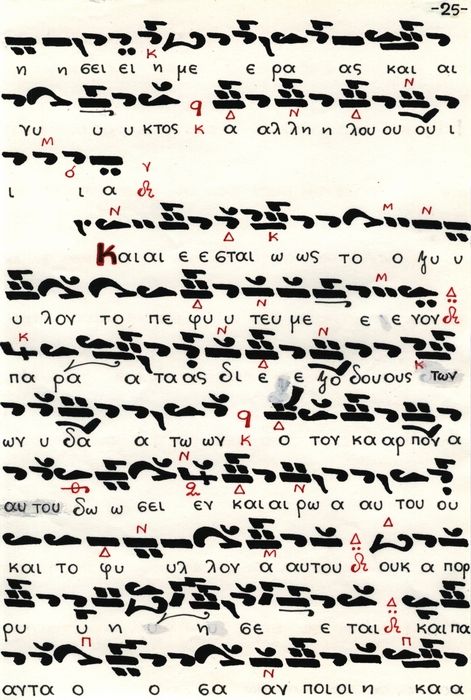 -25-
η η σει ει η με ε ρα ας και αι
γυ υ υ κτος κ α αλ λη η λου ου ου ι
ι ι α
Και αι ε ε σται ω ως το ο ξυ υ
υ λον το πε φυ υ τευ με ε ε νον
πα ρα α τα ας δι ε ε ξο δου ους των
ων υ δα α τω ων κ ο τον κα αρ πον α
αυ του δω ω σει εν και αι ρω α αυ του ου
και το φυ υλ λον α αυτου ουκ α πορ
ρυ υ η υ η σε ε ται και πα
αντα ο ο σα αν ποι οι η κα α